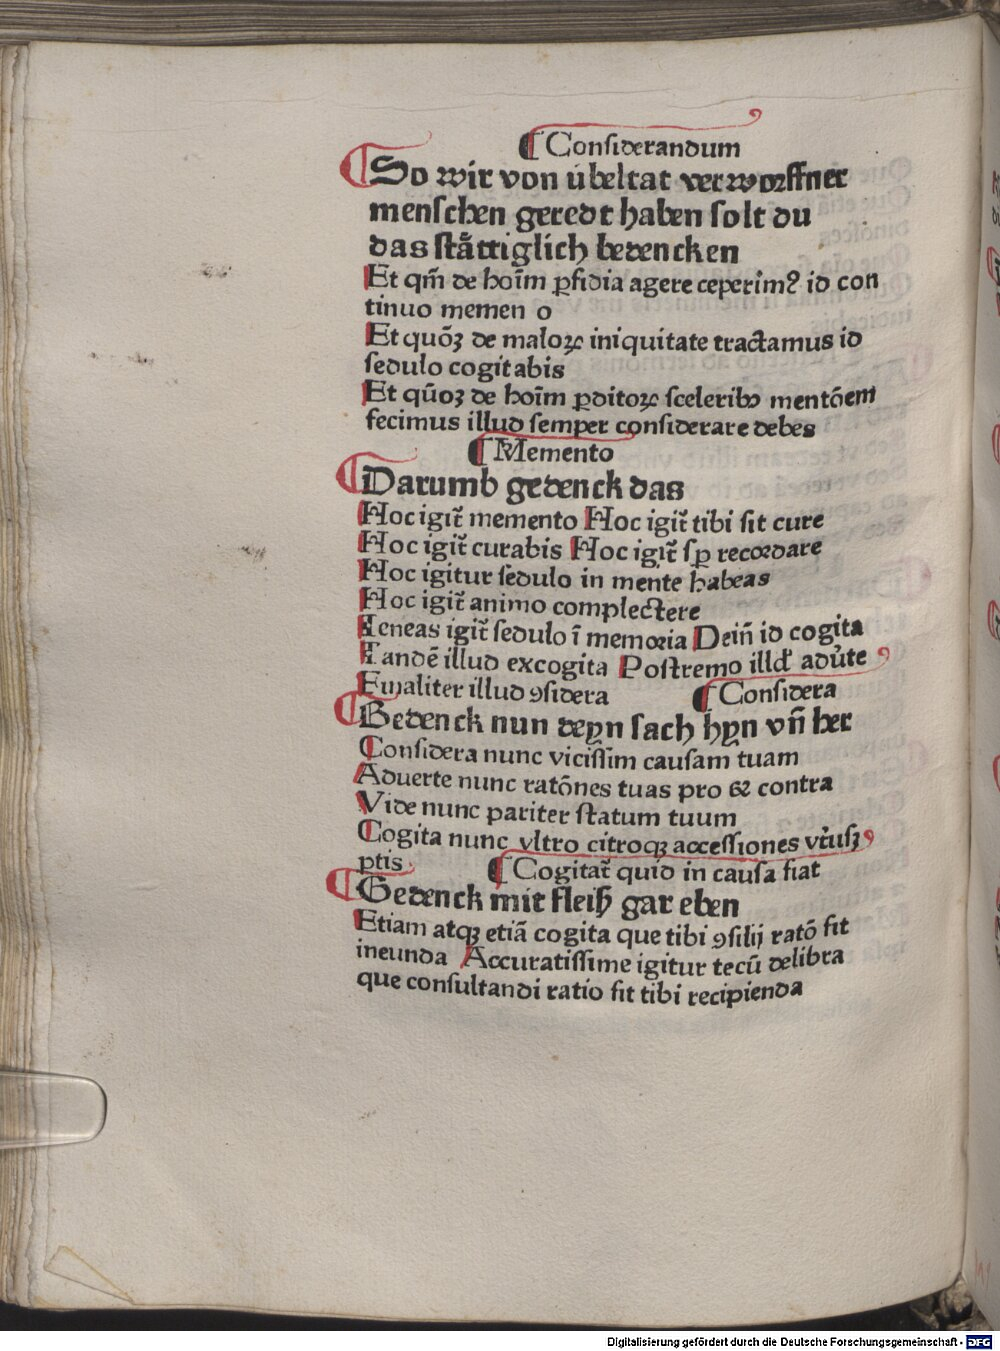 ¶ Considerandum
So wir von übeltat verworffner
menschen geredt haben solt du
das stättiglich bedencken
Et qm̄ de hoīm ꝑfidia agere ceperim? id con
tinuo memen o
Et quōꝫ de maloꝝ iniquitate tractamus id
sedulo cogitabis
Et qūoꝫ de hoīm ꝑditoꝝ sceleribꝰ mentōem
fecimus illud semper considerare debes
¶ Memento
Darumb gedenck das
Hoc igit̄ memento Hoc igit̄ tibi sit cure
Hoc igit̄ curabis Hoc igit̄ sꝑ recordare
Hoc igitur sedulo in mente habeas
Hoc igit̄ animo complectere
Teneas igit̄ sedulo ī memoria Dein̄ id cogita
Tandē illud excogita Postremo illd' adu̓te
Finaliter illud ꝯsidera ¶ Considera
Bedenck nun deyn sach hyn vn̄ her
Considera nunc vicissim causam tuam
Aduerte nunc ratōnes tuas pro & contra
Vide nunc pariter statum tuum
Cogita nunc vltro citroqꝫ accessiones vtr̓usꝫ
ptis ¶ Cogitat̄ quid in causa fiat
Gedenck mit fleiß gar eben
Etiam atqꝫ etiā cogita que tibi ꝯsilij ratō sit
ineunda Accuratissime igitur tecū delibra
que consultandi ratio sit tibi recipienda
Digitalisierung gefördert durch die Deutsche Forschungsgemeinschaft - DFG